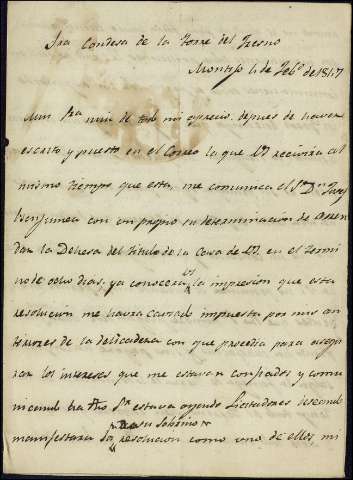 Sra Condesa de la Torre del Fresno
Montijo 4 de Feb.º de 1847
Mui Sra mia de todo mi aprecio, despues de haver
escrito y puesto en el Correo la que V. recivira al
mismo tiempo que esta, me comunica el S.r D.n
con un propio su determinacion de arren
dar la Dehesa del titulo de la Casa de V. en el termi
no de ocho dias, ya conocera V. la impresion que esta
resolucion me havra causado impuesta por mis an
teriores de la delicadeza con que procedia para asegu
rar los intereses que me estavan confiados y como
estava oyendo Licitadores deseando
manifestara a su sobrino la resolucion como uno de ellos, mi